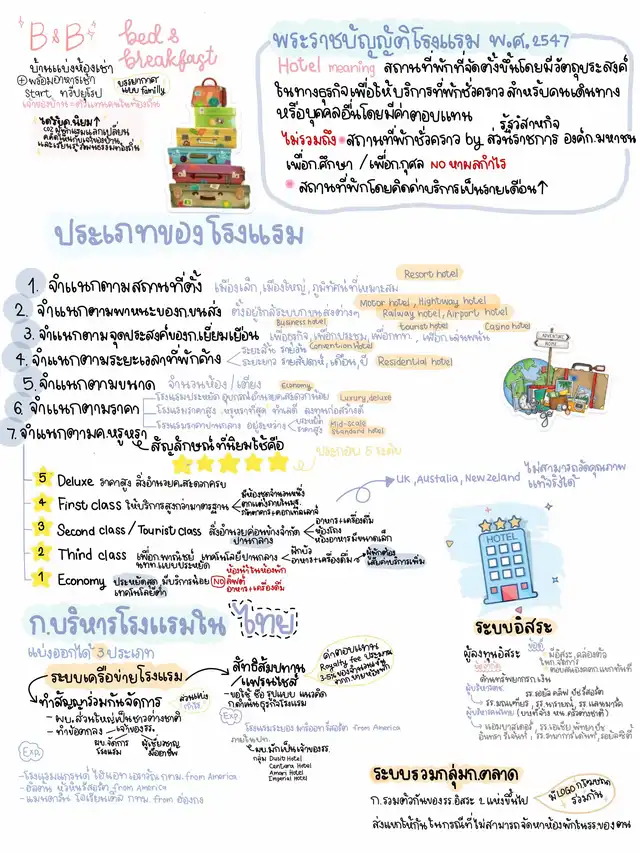 B&B bed &
breakfast
บ้านแบ่งห้องเช่า
+ พร้อมอาหารเช้า
บรรยากาศ
แบบ family
Start ทวีปยุโรป
ไดรับค.นิยม↑
พระราชบัญญัติโรงแรม พ.ศ. 2547
Hotel meaning สถานที่พักที่จัดตั้งขึ้นโดยมีวัตถุประสงค์
ในทางธุรกิจเพื่อให้บริการที่พักชั่วคราว สำหรับคนเดินทาง
หรือบุคคลอื่นโดยมีค่าตอบแทน
, รัฐวิสาหกิจ
ไม่รวมถึง สถานที่พักชั่วคราว by ส่วนราชการ องค์ก.มหาชน
เพื่อก.ศึกษา / เพื่อก.กุศล NO หาผลกำไร
สถานที่พักโดยคิดค่าบริการเป็นรายเดือน↑
ประเภทของโรงแรม
1. จำแนกตามสถานที่ตั้ง เมืองเล็ก, เมืองใหญ่, ภูมิทัศน์ที่เหมาะสม
Resort hotel
2. จำแนกตามพาหนะของก.ขนส่ง ตั้งอยู่ใกล้ระบบก.ขนส่งต่างๆ
Motor hotel, Hightway hotel
Railway hotel, Airport hotel
3. จำแนกตามจุดประสงค์ของก.เยี่ยมเยือน เพื่อธุรกิจ, เพื่อก.ประชุม, เพื่อก.กีฬา , เพื่อก.เล่นพนัน
Business hotel
Convention Hotel
tourist hotel
Casino hotel
4. จำแนกตามระยะเวลาที่พักค้าง
ระยะสั้น รายวัน
ระยะยาว รายสัปดาห์, เดือน, ปี
Residential hotel
5. จำแนกตามขนาด จำนวนห้อง / เตียง
6. จำแนกตามราคา
Economy
โรงแรมประหยัด อุปกรณ์อำนวยค.สะดวกน้อย
Luxury, deluxe
โรงแรมราคาสูง หรูหราที่สุด ทำเลดี ลงทุนก่อสร้างดี
โรงแรมราคาปานกลาง อยู่ระหว่าง ประหยัด
ราคาสูง
Mid-scale
Standard hotel
7. จำแนกตามค.หรูหรา
สัญลักษณ์ที่นิยมใช้คือ
ประกอบ 5 ระดับ
UK, Austalia, Newzeland ไม่สามารถวัดคุณภาพ
แท้จริงได้
5 Deluxe ราคาสูง สิ่งอำนวยค.สะดวกครบ
4 First class ให้บริการสูงกว่ามาตรฐาน
3 Second class / Tourist class สิ่งอำนวยค่อนข้างจำกัด
ปานกลาง
อาหาร+เครื่องดื่ม
ห้องโถง
ห้องอาหารมีขนาดเล็ก
2 Thind class เพื่อก.พาณิชย์ เทคโนโลยีปานกลาง
อาหาร+เครื่องดื่ม
ผู้พักต้อง
เสียค่าบริการเพิ่ม
1 Economy ประหยัดสุด มีบริการน้อย
เทคโนโลยีต่ำ
NO
ห้องน้ำในห้องพัก
ลิฟต์
อาหาร+เครื่องดื่ม
ADVENTURE
HOTEL
ก.บริหารโรงแรมใน ไทย
แบ่งออกได้ 3 ประเภท
ระบบเครือข่ายโรงแรม
ทำสัญญาร่วมกันจัดการ
ส่วนแบ่ง
กำไร
- พบ.ส่วนใหญ่เป็นชาวต่างชาติ
- ทำข้อตกลง เจ้าของรร.
ผบ.จัดการ
โรงแรม
ผู้เชี่ยวชาญ
มืออาชีพ
Exp.
from America
from America
from ฮ่องกง
สิทธิสัมปทาน/
แฟรนไชส์
ค่าตอบแทน
Royalty fee ประมาณ
3-5% ของจำนวนเงิน
จากก.ขายห้องพัก
- ขอใช้ ชื่อ รูปแบบ แนวคิด
ก.ดำเนินธุรกิจโรงแรม
Exp
from America
ภายในปท.
กลุ่ม Dusit Hotel
Centara Hotel
Amari Hotel
Imperial Hotel
ระบบอิสระ
ผู้ลงทุนอิสระ
ข้อดี
ข้อจำกัด
ด้านทรัพยากรก.เงิน
ระบบรวมกลุ่มก.ตลาด
ก.รวมตัวกันของรร.อิสระ 2 แห่งขึ้นไป
มี LOGO
ร่วมกัน
ส่งแขกให้กันในกรณีที่ไม่สามารถจัดหาห้องพักในรร.ของตน